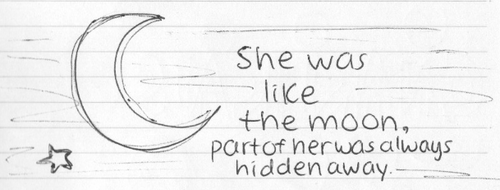 She was
like
the moon,
part of her was always
hidden away.